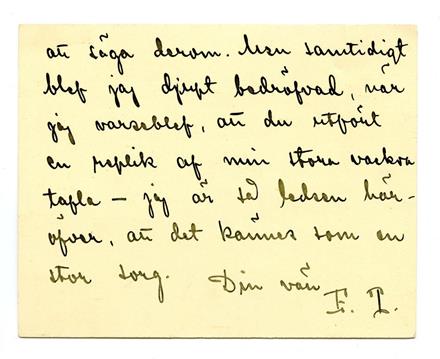 att säga derom. Men samtidigt
blef jag djupt bedröfvad, när
jag varseblef, att du utfört
en replik af min stora vackra
tafla – jag är så ledsen här-
öfver, att det kännes som en
stor sorg. Din vän
F. L.